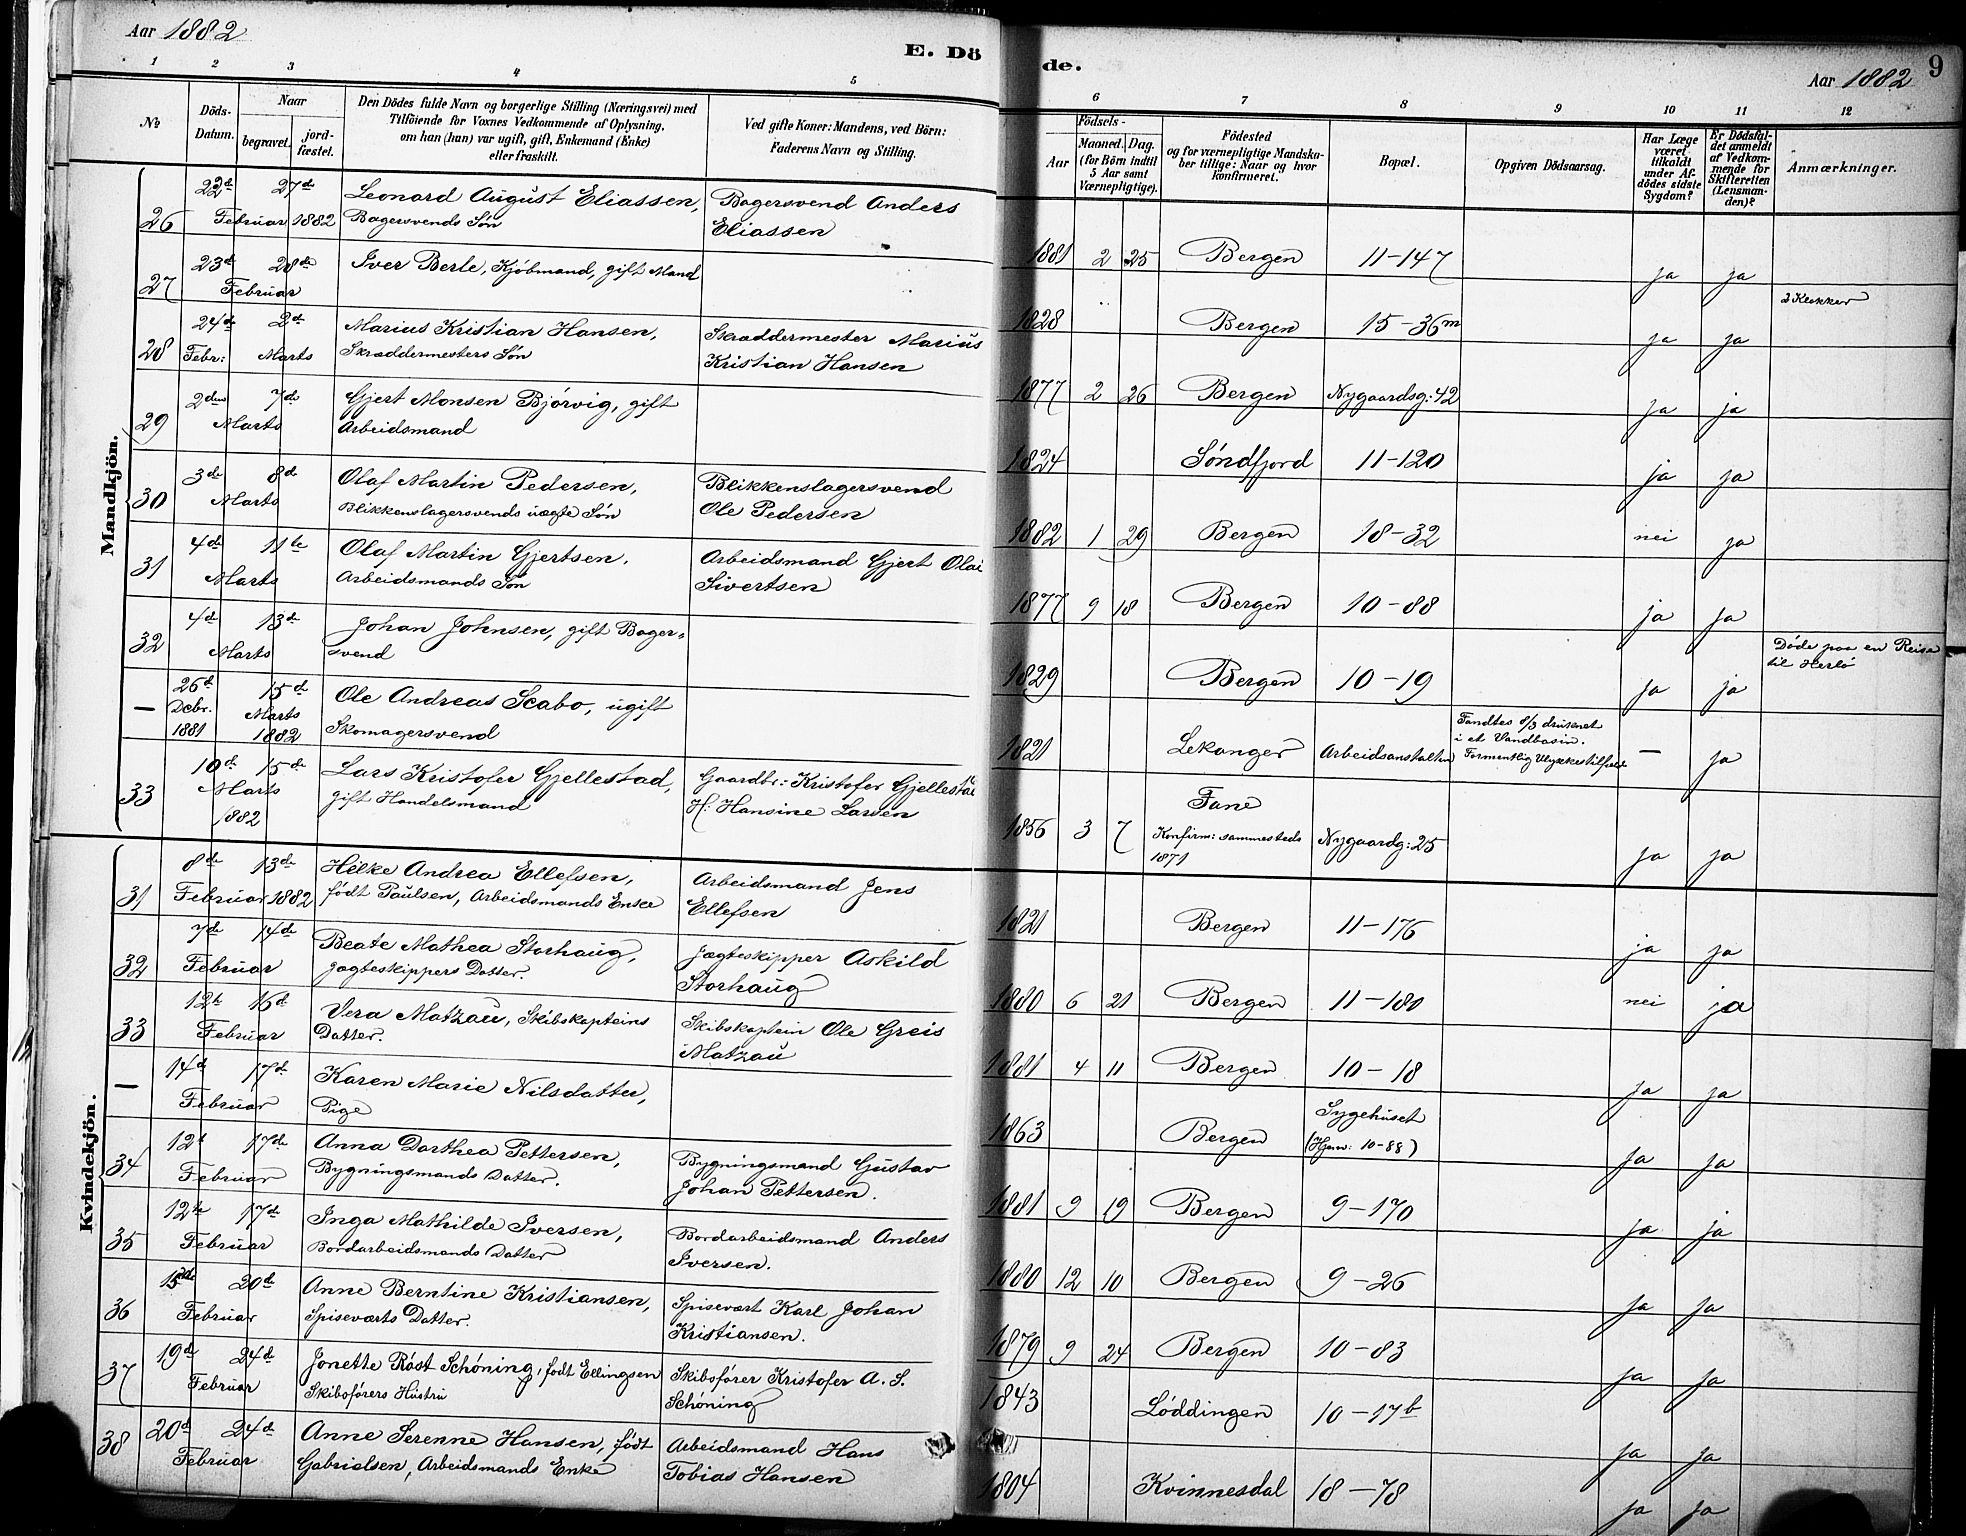 Aar 1882
E. Dö
de.
Aar 1882
9
1 2 3 4 5 6 7 8 9 10 11 12
№
Döds-
Datum.
Naar
begravet.
jord-
fæstet.
Den Dödes fulde Navn og borgerlige Stilling (Næringsvei) med
Tilföiende for Voxnes Vedkommende af Oplysning,
om han (hun) var ugift, gift, Enkemand (Enke)
eller fraskilt.
Ved gifte Koner: Mandens, ved Börn:
Faderens Navn og Stilling.
Födsels-
Aar
Maaned.
Dag.
(for Börn indtil
5 Aar samt
Værnepligtige).
Födested
og for værnepligtige Mandska-
ber tillige: Naar og hvor
konfirmeret.
Bopæl.
Opgiven Dödsaarsag.
Har Læge
været
tilkaldt
under Af-
dödes sidste
Sygdom?
Er Dödsfal-
det anmeldt
af Vedkom-
mende for
Skifteretten
(Lensman-
den)?
Anmærkninger.
Mandkjön.
26 22d Februar 27d 1882 Leonard August Eliassen, Bagersvend Anders
Bagersvends Søn Eliassen
1881 2 25 Bergen 11-147 ja ja
27 23d 28de Februar Iver Berle, Kjøbmand, gift Mand
1828 Bergen 15-36m ja ja 2 Klokker
28 24de Febr: 2d Marts Marius Kristian Hansen, Skræddermester Marius
Skræddermesters Søn Kristian Hansen
1877 2 26 Bergen Nygaardsg: 42 ja ja
29 2den 7de Marts Gjert Monsen Bjørvig, gift
Arbeidsmand
1824 Søndfjord 11-120 ja ja
30 3de 8d Marts Olaf Martin Pedersen, Blikkenslagersvend
Blikkenslagersvends uægte Søn Ole Pedersen
1882 1 29 Bergen 18-32 nei ja
31 4de 11te Marts Olaf Martin Gjertsen, Arbeidsmand Gjert Olai
Arbeidsmands Søn Sivertsen
1877 9 18 Bergen 10-88 ja ja
32 4d 13de Marts Johan Johnsen, gift Bager-
svend
1829 Bergen 10-19 ja ja Døde paa en Reise
til Herlø
— 26d Debr. 1881 15de Marts 1882 Ole Andreas Scabo, ugift
Skomagersvend
1821 Lekanger Arbeidsanstalten Fandtes 8/3 druknet
i et Vandbasin.
Formentlig Ulykkestilfælde — ja
33 10d 15de Marts 1882 Lars Kristofer Gjellestad, Gaardbr: Kristofer Gjellestad
gift Handelsmand H: Hansine Larsen
1856 3 7 Fane
Konfirm: sammesteds
1871 Nygaardg: 25 ja ja
Kvindekjön.
31 8de 13de Februar 1882 Hilke Andrea Ellefsen, Arbeidsmand Jens
født Paulsen, Arbeidsmands Enke Ellefsen
1821 Bergen 11-176 ja ja
32 7de 14de Februar Beate Mathea Storhaug, Jægteskipper Askild
Jægteskippers Datter. Storhaug
1880 6 21 Bergen 11-180 nei ja
33 12te 16d Februar Vera Matzau, Skibskapteins Skibskaptein Ole Greis
Datter. Matzau
1881 4 11 Bergen 10-18 ja ja
— 14d 17de Februar Karen Marie Nilsdatter,
Pige
1863 Bergen Sygehuset
(Hjem: 10-88) ja ja
34 12t 17de Februar Anna Dorthea Pettersen, Bygningsmand Gustav
Bygningsmands Datter. Johan Pettersen.
1881 9 19 Bergen 9-170 ja ja
35 12te 17d Februar Inga Mathilde Iversen, Bordarbeidsmand Anders
Bordarbeidsmands Datter Iversen.
1880 12 10 Bergen 9-26 ja ja
36 15de 20d Februar Anne Berntine Kristiansen, Spisevært Karl Johan
Spiseværts Datter. Kristiansen.
1879 9 24 Bergen 10-83 ja ja
37 19d 24d Februar Jonette Røst Schøning, født Ellingsen Skibsfører Kristofer A. S.
Skibsførers Hustru Schøning
1843 Løddingen 10-17b ja ja
38 20d 24d Februar Anne Serenne Hansen, født Arbeidsmand Hans
Gabrielsen, Arbeidsmands Enke Tobias Hansen
1804 Kvinnesdal 18-78 ja ja